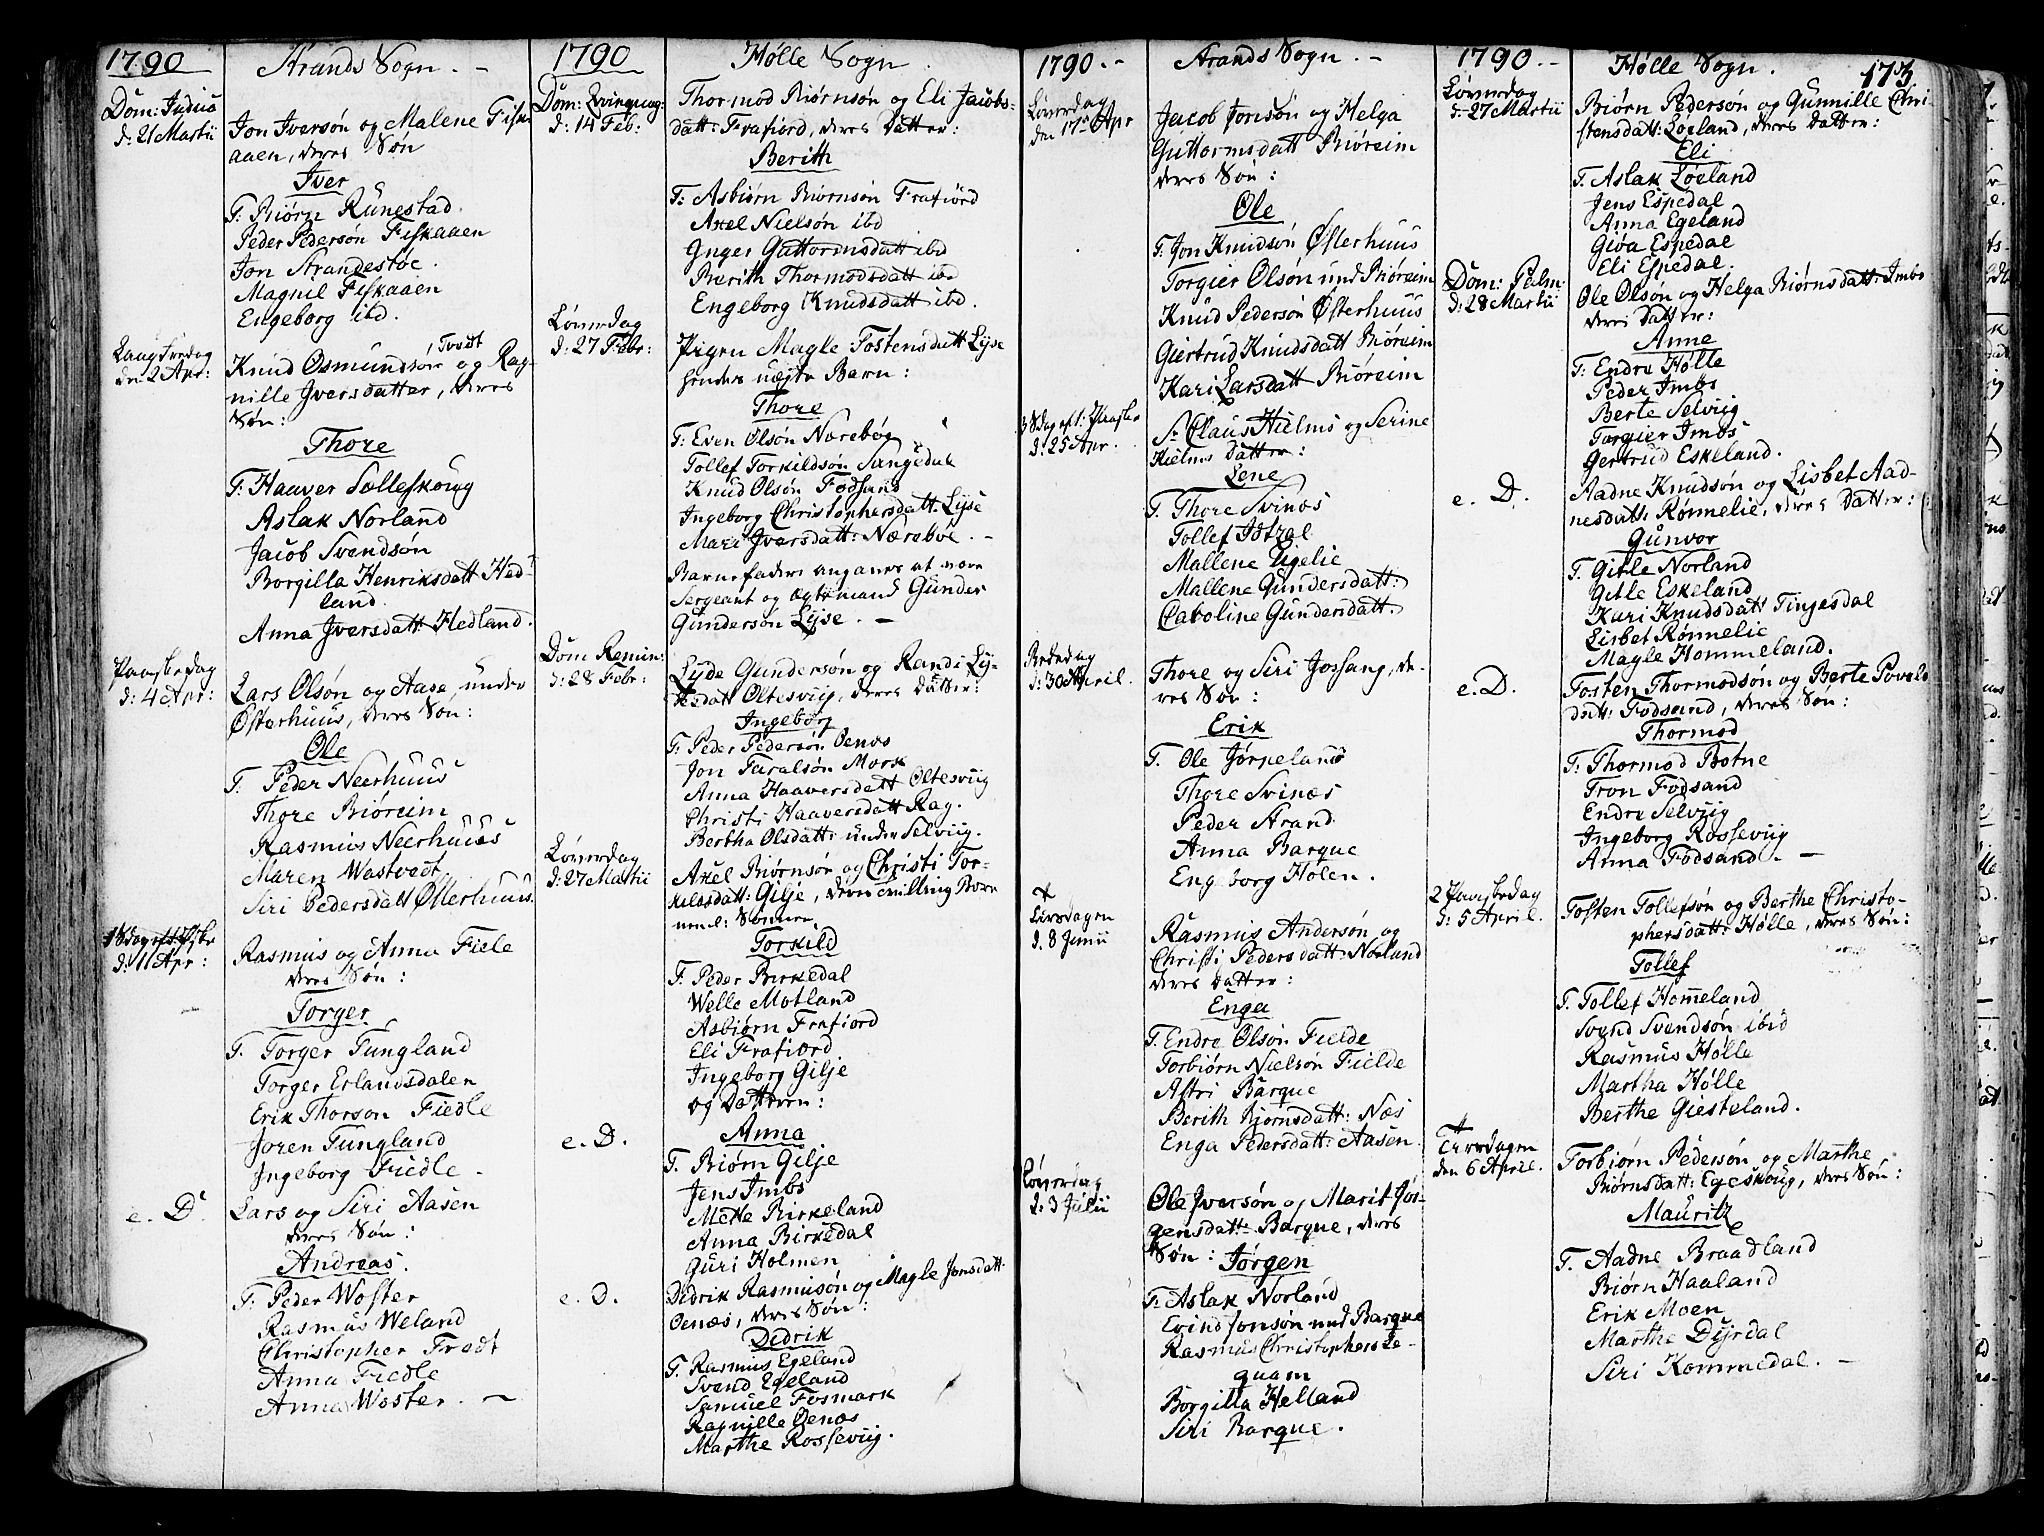 1790
Strands Sogn. -
Dom: Judica
d: 21 Martii
Jon Iversøn og Malene Fisk-
aaen, deres Søn
Iver
F: Biørn Rünestad.
Peder Pedersøn Fiskaaen
Jon Strandestøe.
Magnil Fiskaaen
Engeborg ibd.
Lang fredag
den 2 Apr:
Knud Osmundsøn Tvedt og Rag-
nille Iversdatter, deres
Søn:
Thore
F: Haaver Sælleskoug
Aslak Norland
Jacob Svendsøn
Borgilla Henriksdatt Hed-
land
Anna Iversdatt Hedland.
Paaskedag
d: 4 Apr:
Lars Olsøn og Aase under
Østerhuus, deres Søn:
Ole
F. Peder Neerhuus
Thore Biøreim
Rasmus Neerhuus
Maren Wastvedt
Siri Pedersdatt Østerhuus.
d: 11 Apr:
Rasmus og Anna Fiele
deres Søn:
Torger
F. Torger Tungland
Torger Erlandsdalen
Erik Thorson Fiedle
Joren Tungland
Ingeborg Fiedle -
e. D.
Lars og Siri Aasen
deres Søn:
Andreas.
F: Peder Woster
Rasmus Weland
Christopher Trodt
Anna Fiedle
Anna Woster. -
1790
Hølle Sogn.
Dom: Qvinquag:
d: 14 Feb:
Thormod Biørnsøn og Eli Jacobs-
datt: Frafiord, deres Datter:
Berith
F: Asbiørn Biørnsøn Frafiord
Axel Nielsøn ibd
Inger Guttormsdatt ibd
Berith Thormodsdatt ibd
Engeborg Knudsdatt ibd.
Løverdag
d: 27 Febr:
Pigen Magle Tostensdatt Lyse
hendes uægte Barn:
Thore
F: Even Olsøn Nærebøe
Tollef Torkildsøn Sangedal
Knud Olsøn Fodsand
Ingeborg Christophersdatt. Lyse
Mari Iversdatt: Nærebøe. -
Barnefader angaves at være
Sergeant og ægtemand Gunder
Gundersøn Lyse. -
Dom Remin:
d: 28 Febr:
Lyde Gundersøn og Randi Ly-
desdatt Oltesviig, deres Datter:
Ingeborg
F: Peder Pedersøn Oenæs
Jon Taralsøn Mork
Anna Haaversdatt Oltesviig
Christi Haaversdatt Rag.
Bertha Olsdatt: under Selviig.
Løverdag
d: 27 Martii
Axel Biørnsøn og Christi Tor-
kildsdatt: Gilje, deres tvilling Børn
neml: Sønnen
Torkild
F: Peder Birkedal
Welle Motland
Asbiørn Frafiord
Eli Frafiord
Ingeborg Gilje
og Datteren:
e. D.
Anna
F. Biørn Gilje
Jens Imbs
Mette Birkeland
Anna Birkedal
Guri Holmen
e. D.
Didrik Rasmusøn og Magle Jonsdatt.
Oenæs, deres Søn:
Didrik
F. Rasmus Egeland
Svend Egeland
Samuel Fosmark
Ragnille Oenæs
Marthe Rossevig.
1790. -
Strands Sogn. -
Løverdag
den 17de Apr
Jacob Jonsøn og Helga
Guttormsdatt Biøreim
deres Søn:
Ole
F. Jon Knudsøn Østerhuus
Torgier Olsøn und Biøreim
Knud Pedersøn Østerhuus
Giertrud Knudsdatt Biøreim
Kari Larsdatt Biøreim
3 Sdag eft: Paaske
d: 25 Apr.
Sr Claus Hielms og Serine
Hielms Datter:
Lene
F. Thore Svines
Tollef Idtzal
Mallene Ugelie
Mallene Gundersdatt:
Caroline Gundersdatt.
Bededag
d: 30 April.
Thore og Siri Jossang, de-
res Søn:
Erik
F. Ole Jørpeland
Thore Svinæs
Peder Strand
Anna Barque
Engeborg Holen.
d. 8 Junii
Rasmus Andersøn og
Christi Pedersdatt: Norland
deres Datter:
Enga
F. Endre Olsøn Fielde
Torbiørn Nielsøn Fielde
Astri Barque
Berith Bjørnsdatt: Næs
Enga Pedersdatt: Aasen.
Løverdag
d: 3 Julii
Ole Iversøn og Marit Jør-
gensdatt: Barque, deres
Søn: Jørgen
F. Aslak Norland
Evind Jonsøn und Barque
Rasmus Christophers Le-
quam
Borgilla Helland
Siri Barque.
1790. -
Hølle Sogn.
173
Løverdag
d: 27 Martii
Biørn Pedersøn og Gunnille Chri-
stensdatt: Løeland, deres Datter:
Eli
F. Aslak Løeland
Jens Espedal
Anna Egeland
Giøa Espedal
Eli Espedal.
Dom: Palm:
d: 28 Martii
Ole Olsøn og Helga Biørnsdatt: Imbs
deres Datter:
Anne
F: Endre Hølle
Peder Imbs
Berte Selviig
Torgier Imbs
Gertrud Eskeland.
e. D.
Aadne Knudsøn og Lisbet Aad-
nesdatt: Rønnelie, deres Datter:
Gunvor
F. Gitle Norland
Gitle Eskeland
Kari Knudsdatt Tingesdal
Lisbet Rønnelie
Magle Hommeland.
e. D.
Tosten Thormodsøn og Berte Povels
datt: Fodsand, deres Søn:
Thormod
F: Thormod Botne
Tron Fodsand
Endre Selviig
Ingeborg Rossevig
Anna Fodsand. -
2 Paaskedag
d: 5 April.
Tosten Tollefsøn og Berthe Christo-
phersdatt: Hølle, deres Søn:
Tollef
F. Tollef Homeland
Svend Svendsøn ibid
Rasmus Hølle
Martha Hølle
Berthe Giesteland.
Tirsdagen
den 6 April.
Torbiørn Pedersøn og Marthe
Biørnsdatt: Egeskoug, deres Søn:
Mauritz
F. Aadne Braadland
Biørn Haaland
Erik Moen
Marthe Dyrdal
Siri Kommedal. -